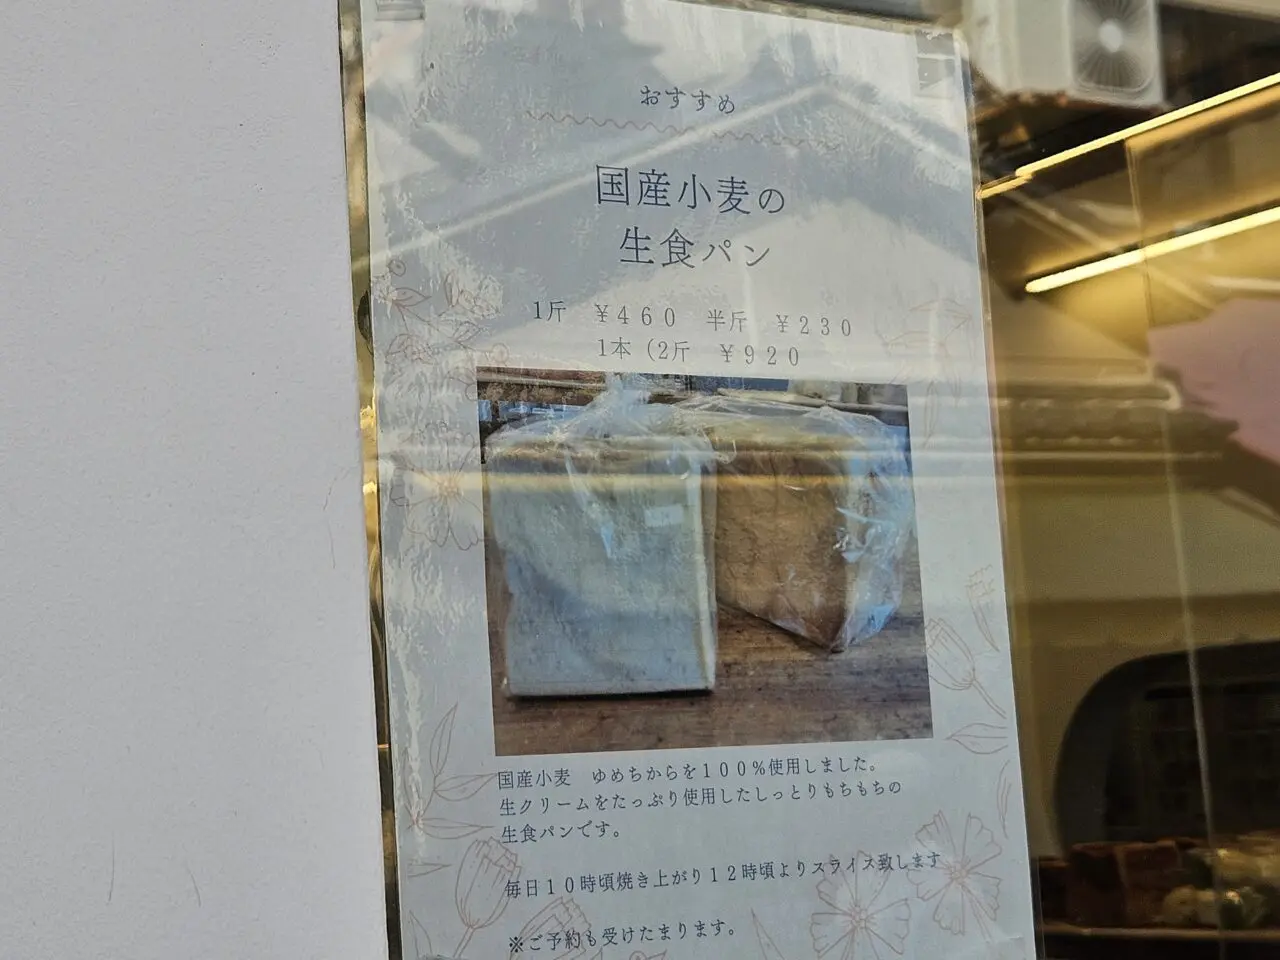 おすすめ
国産小麦の
生食パン
1斤　￥４６０　半斤　￥２３０
1本（2斤　￥９２０
国産小麦　ゆめちからを１００％使用しました。
生クリームをたっぷり使用したしっとりもちもちの
生食パンです。
毎日１０時頃焼き上がり１２時頃よりスライス致します
※ご予約も受けたまります。